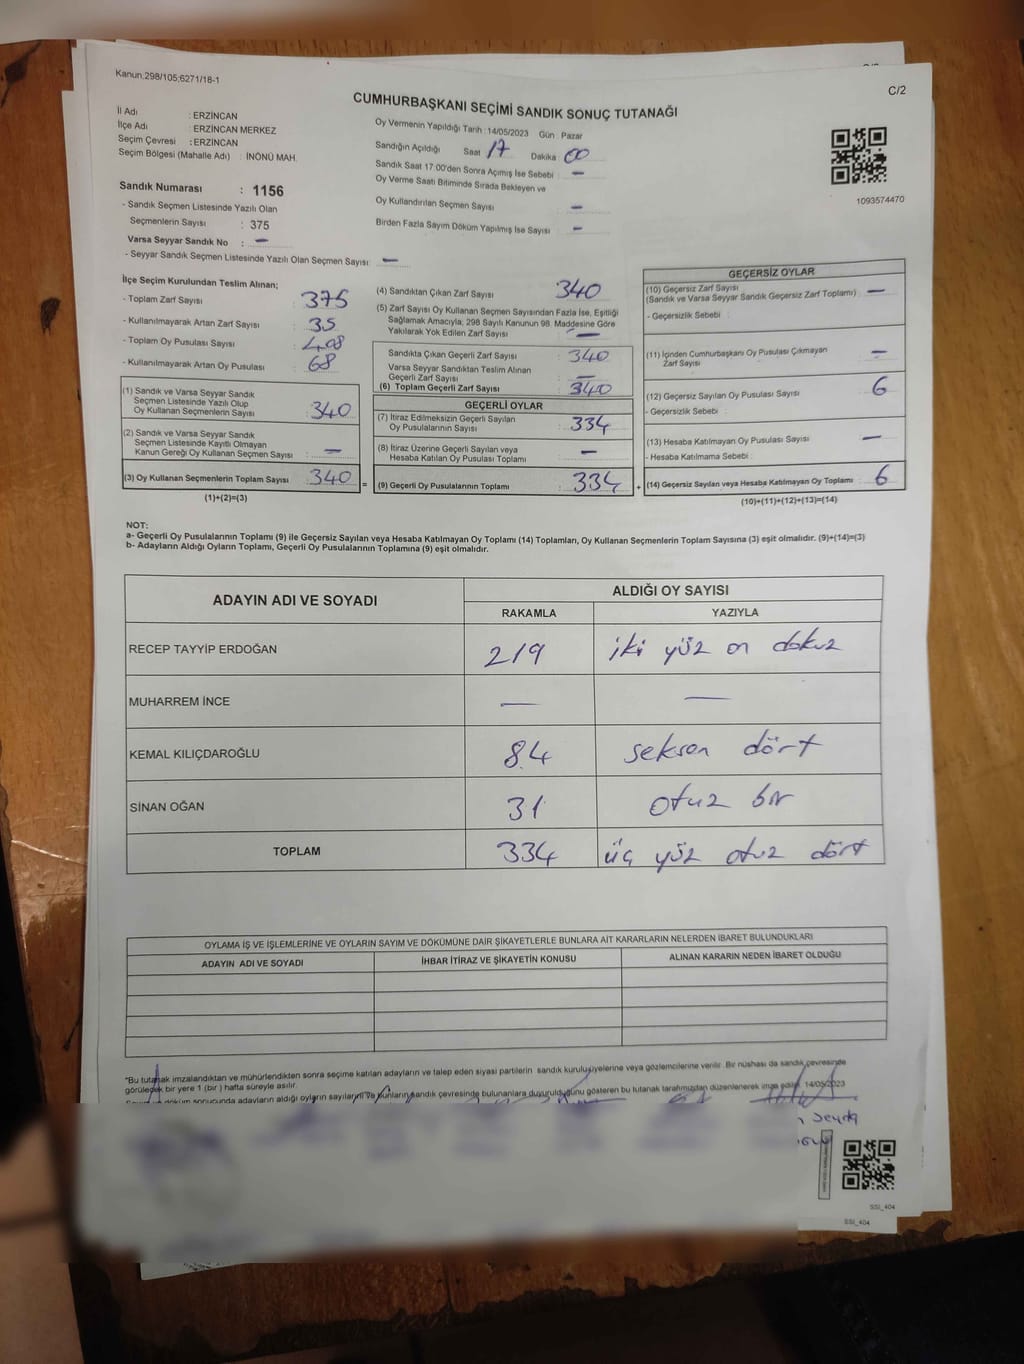 Kanun:298/105;6271/18-1
C/2
CUMHURBAŞKANI SEÇİMİ SANDIK SONUÇ TUTANAĞI
İl Adı : ERZİNCAN
İlçe Adı : ERZİNCAN MERKEZ
Seçim Çevresi : ERZİNCAN
Seçim Bölgesi (Mahalle Adı) : İNÖNÜ MAH.
Sandık Numarası : 1156
- Sandık Seçmen Listesinde Yazılı Olan
Seçmenlerin Sayısı : 375
Varsa Seyyar Sandık No : —
- Seyyar Sandık Seçmen Listesinde Yazılı Olan Seçmen Sayısı: —
Oy Vermenin Yapıldığı Tarih : 14/05/2023 Gün : Pazar
Sandığın Açıldığı Saat 17 Dakika : 00
Sandık Saat 17:00'den Sonra Açımış İse Sebebi : —
Oy Verme Saati Bitiminde Sırada Bekleyen ve
Oy Kullandırılan Seçmen Sayısı —
Birden Fazla Sayım Döküm Yapılmış İse Sayısı —
1093574470
İlçe Seçim Kurulundan Teslim Alınan;
- Toplam Zarf Sayısı : 375
- Kullanılmayarak Artan Zarf Sayısı : 35
- Toplam Oy Pusulası Sayısı : 408
- Kullanılmayarak Artan Oy Pusulası : 68
(1) Sandık ve Varsa Seyyar Sandık
Seçmen Listesinde Yazılı Olup
Oy Kullanan Seçmenlerin Sayısı : 340
(2) Sandık ve Varsa Seyyar Sandık
Seçmen Listesinde Kayıtlı Olmayan
Kanun Gereği Oy Kullanan Seçmen Sayısı : —
(3) Oy Kullanan Seçmenlerin Toplam Sayısı : 340
(1)+(2)=(3)
=
(4) Sandıktan Çıkan Zarf Sayısı 340
(5) Zarf Sayısı Oy Kullanan Seçmen Sayısından Fazla İse, Eşitliği
Sağlamak Amacıyla, 298 Sayılı Kanunun 98. Maddesine Göre
Yakılarak Yok Edilen Zarf Sayısı : —
Sandıkta Çıkan Geçerli Zarf Sayısı : 340
Varsa Seyyar Sandıktan Teslim Alınan
Geçerli Zarf Sayısı : —
(6) Toplam Geçerli Zarf Sayısı : 340
GEÇERLİ OYLAR
(7) İtiraz Edilmeksizin Geçerli Sayılan
Oy Pusulalarının Sayısı : 334
(8) İtiraz Üzerine Geçerli Sayılan veya
Hesaba Katılan Oy Pusulası Toplamı : —
(9) Geçerli Oy Pusulalarının Toplamı : 334
+
GEÇERSİZ OYLAR
(10) Geçersiz Zarf Sayısı
(Sandık ve Varsa Seyyar Sandık Geçersiz Zarf Toplamı) : —
- Geçersizlik Sebebi :
(11) İçinden Cumhurbaşkanı Oy Pusulası Çıkmayan
Zarf Sayısı : —
(12) Geçersiz Sayılan Oy Pusulası Sayısı : 6
- Geçersizlik Sebebi :
(13) Hesaba Katılmayan Oy Pusulası Sayısı : —
- Hesaba Katılmama Sebebi :
(14) Geçersiz Sayılan veya Hesaba Katılmayan Oy Toplamı : 6
(10)+(11)+(12)+(13)=(14)
NOT:
a- Geçerli Oy Pusulalarının Toplamı (9) ile Geçersiz Sayılan veya Hesaba Katılmayan Oy Toplamı (14) Toplamları, Oy Kullanan Seçmenlerin Toplam Sayısına (3) eşit olmalıdır. (9)+(14)=(3)
b- Adayların Aldığı Oyların Toplamı, Geçerli Oy Pusulalarının Toplamına (9) eşit olmalıdır.
ADAYIN ADI VE SOYADI ALDIĞI OY SAYISI
RAKAMLA YAZIYLA
RECEP TAYYİP ERDOĞAN 219 iki yüz on dokuz
MUHARREM İNCE — —
KEMAL KILIÇDAROĞLU 84 seksen dört
SİNAN OĞAN 31 otuz bir
TOPLAM 334 üç yüz otuz dört
OYLAMA İŞ VE İŞLEMLERİNE VE OYLARIN SAYIM VE DÖKÜMÜNE DAİR ŞİKAYETLERLE BUNLARA AİT KARARLARIN NELERDEN İBARET BULUNDUKLARI
ADAYIN ADI VE SOYADI İHBAR İTİRAZ VE ŞİKAYETİN KONUSU ALINAN KARARIN NEDEN İBARET OLDUĞU
*Bu tutanak imzalandıktan ve mühürlendikten sonra seçime katılan adayların ve talep eden siyasi partilerin sandık kurulu üyelerine veya gözlemcilerine verilir. Bir nüshası da sandık çevresinde
görülecek bir yere 1 (bir) hafta süreyle asılır.
döküm sonucunda adayların aldığı oyların sayılarını ve bunların sandık çevresinde bulunanlara duyurulduğunu gösteren bu tutanak tarafımızdan düzenlenerek imza edildi. 14/05/2023
SSI_404
SSI_404